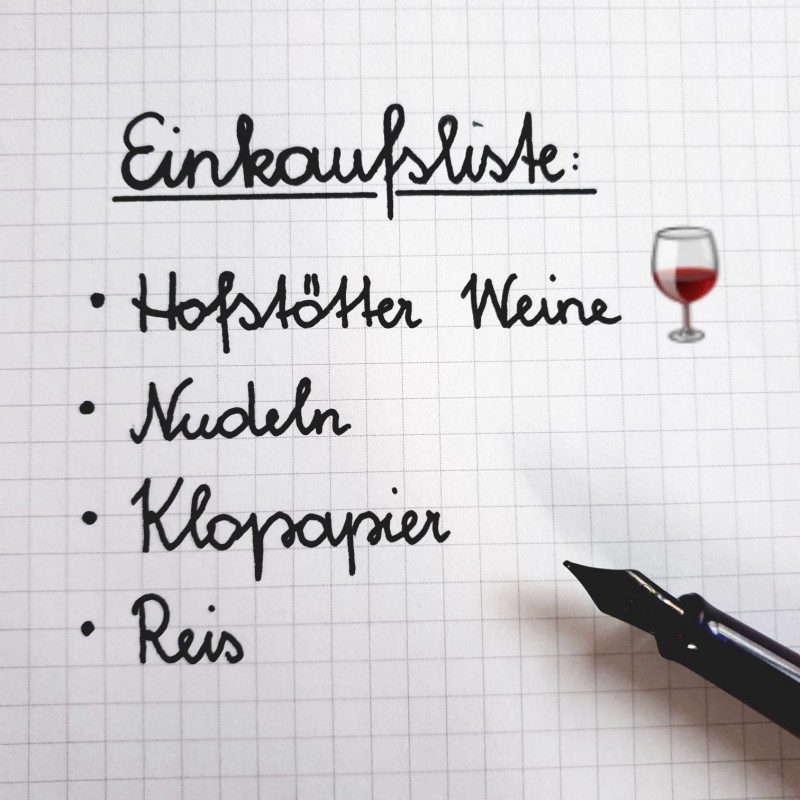 Einkaufsliste:
• Hofstötter Weine 🍷
• Nudeln
• Klopapier
• Reis